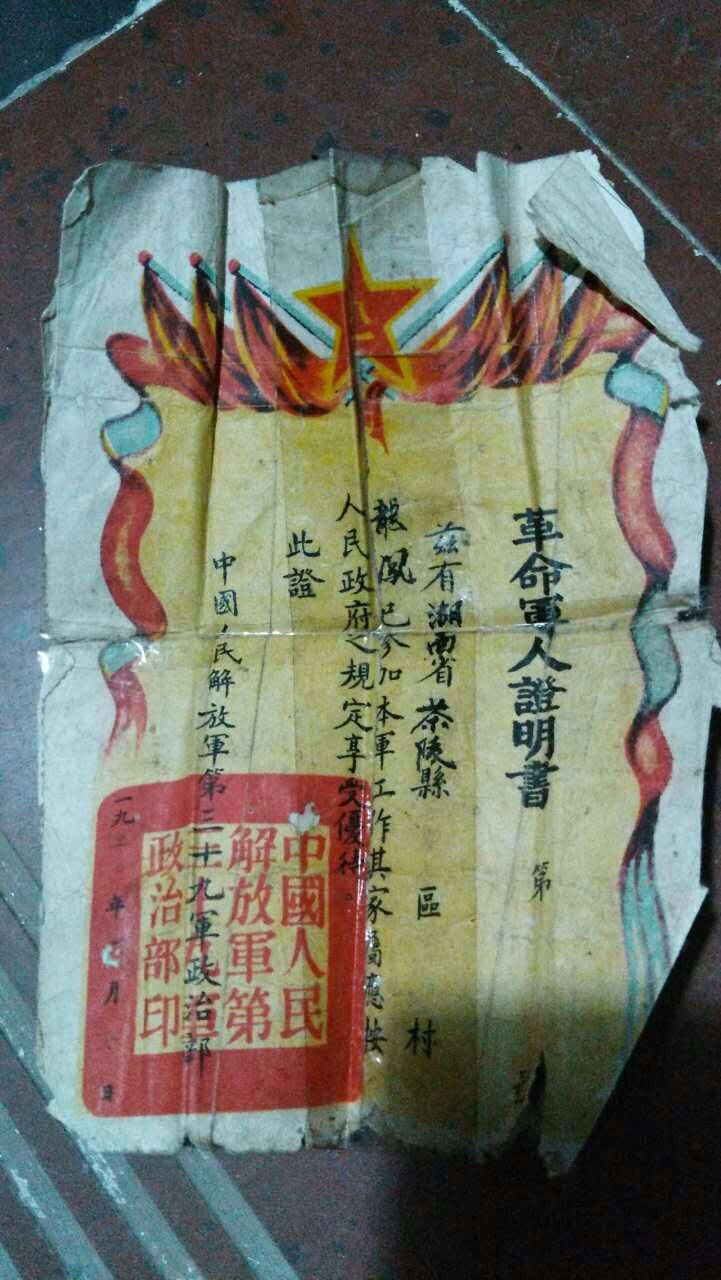 革命軍人證明書
第 號
茲有湖南省茶陵縣 區 村
龍鳳已參加本軍工作其家屬應按
人民政府之規定享受優待。
此證
中國人民解放軍第三十九軍政治部
一九五 年 月 日
中國人民
解放軍第
政治部印